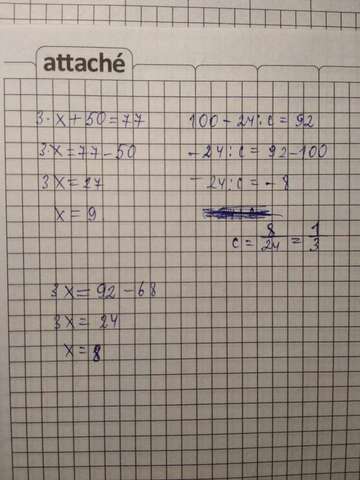 attaché
3·x+50=77
3x=77-50
3x=27
x=9
100-24:c=92
-24:c=92-100
-24:c=-8
c=8/24=1/3
3x=92-68
3x=24
x=8